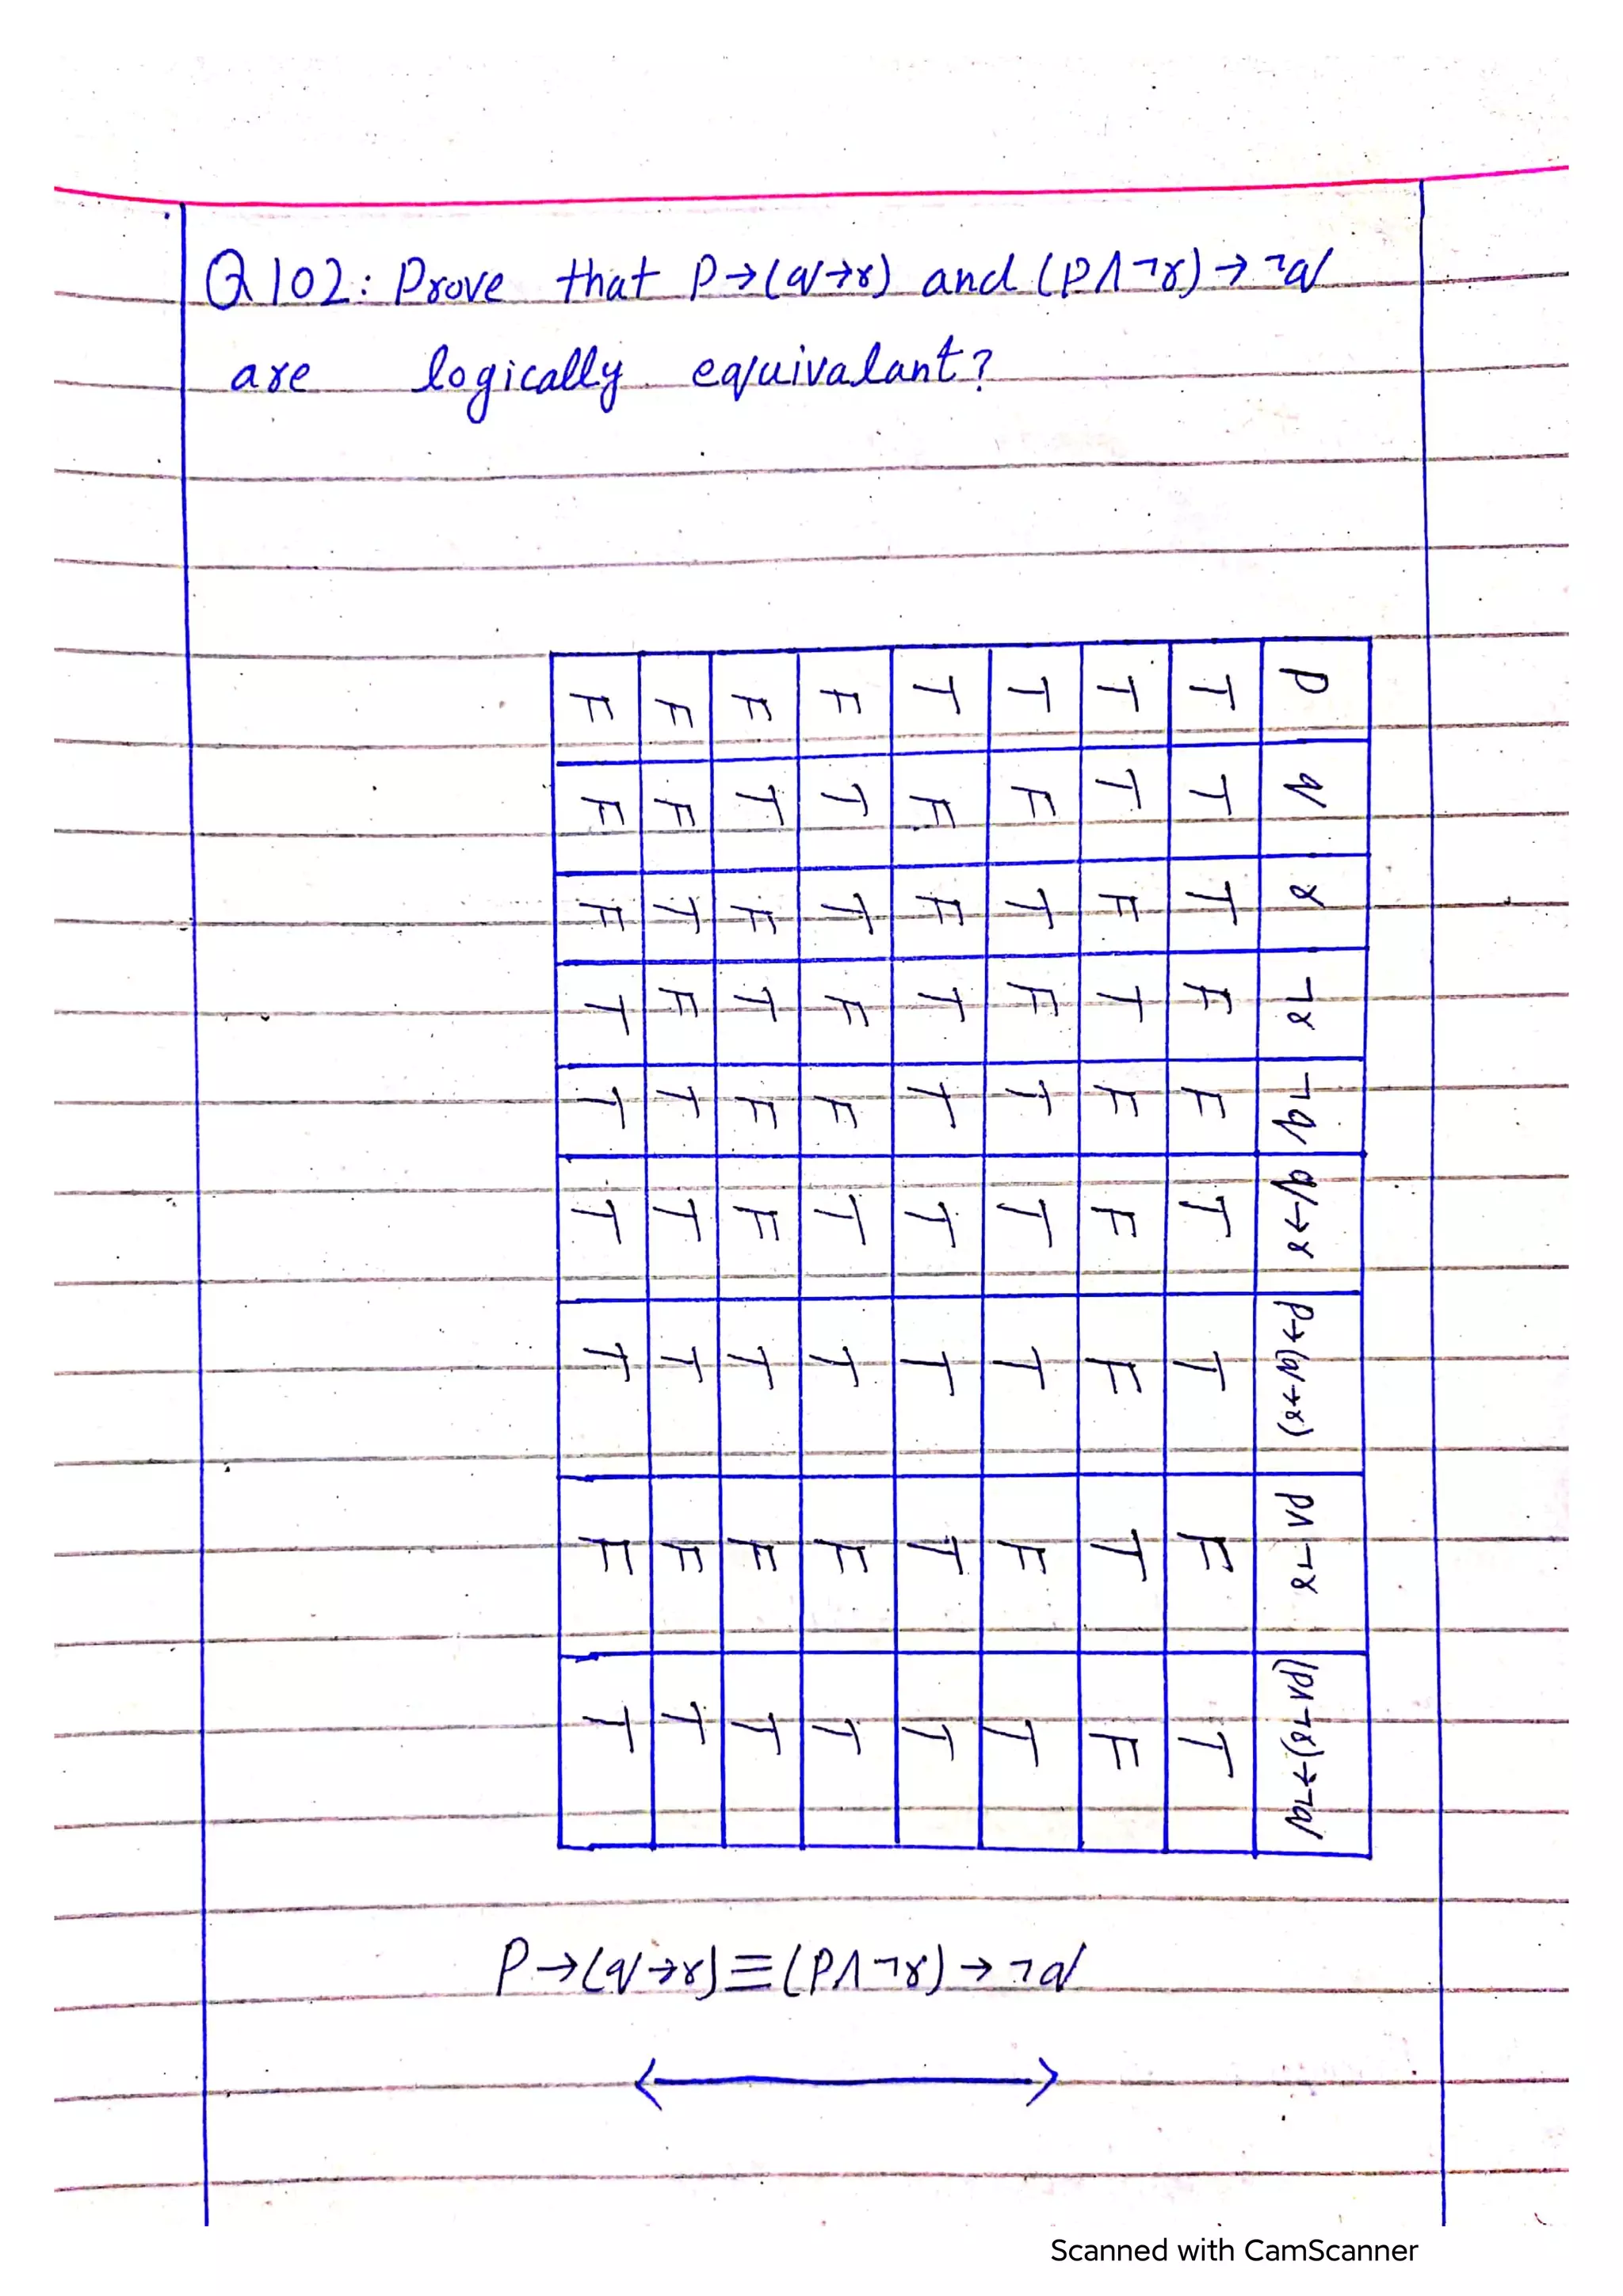 Q102: Prove that P→(q→r) and (P∧¬r)→¬q
are logically equivalant?
P q r ¬r ¬q q→r P→(q→r) P∧¬r (P∧¬r)→¬q
T T T F F T T F T
T T F T F F F T F
T F T F T T T F T
T F F T T T T T T
F T T F F T T F T
F T F T F F T F T
F F T F T T T F T
F F F T T T T F T
P→(q→r)≡(P∧¬r)→¬q
Scanned with CamScanner